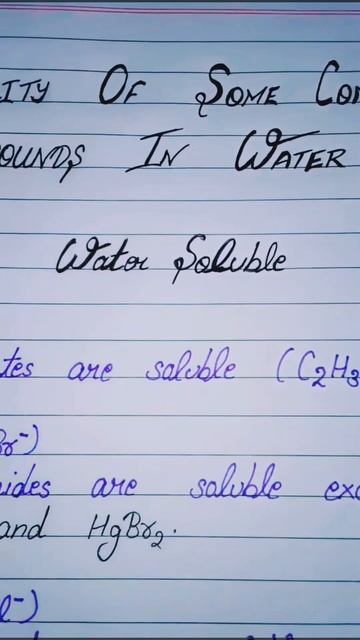 ITY OF SOME COM
OUNDS IN WATER
Water Soluble
tes are soluble (C₂H₃
Br⁻)
ides are soluble exc
and HgBr₂.
l⁻)